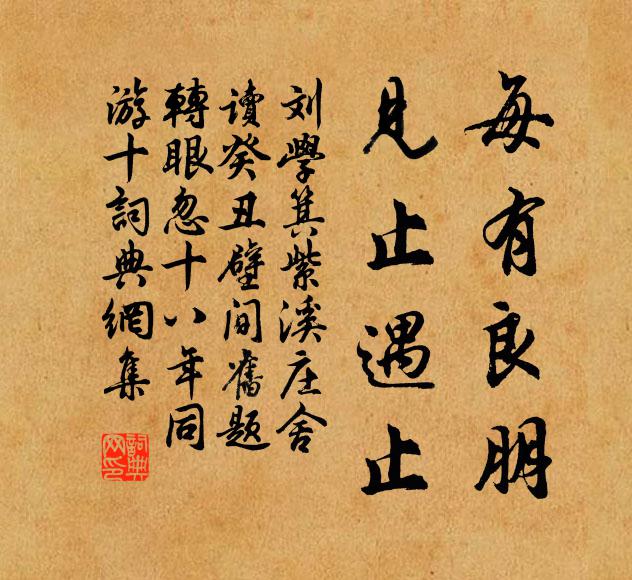 每有良朋
見止遇止
刘學箕紫溪庄舍
讀癸丑壁间舊题
轉眼忽十八年同
游十詞典網集
詞典
网印